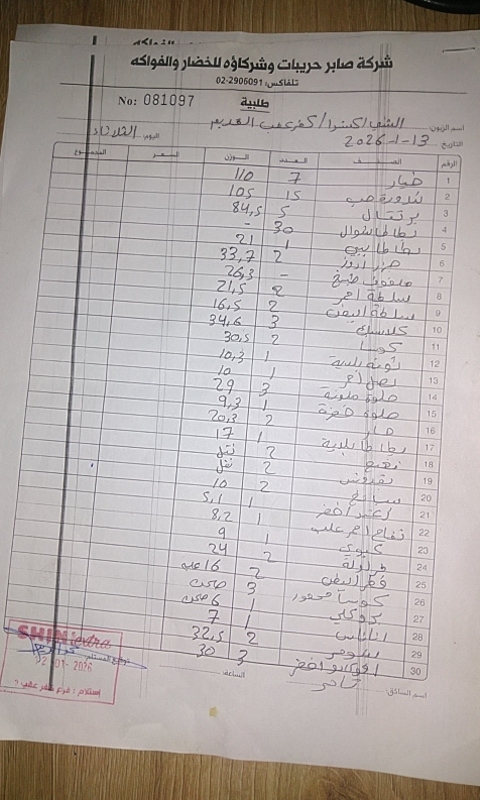 شركة صابر حريبات وشركاؤه للخضار والفواكه
تلفاكس: 2906091-02
No: 081097
طلبية
اسم الزبون: الشني اكسترا / كفر عقب القديم
التاريخ: 13-1-2026 اليوم: الثلاثاء
الرقم الصنف العدد الوزن السعر المجموع
1 خيار 7 110
2 بندورة حب 15 105
3 برتقال 5 84,5
4 بطاطا شوال 30 -
5 بطاطا بيبي 1 21
6 جزر اروز 2 33,7
7 ملفوف طبخ - 26,3
8 سلطة احمر 2 21,5
9 سلطة ابيض 2 16,5
10 كلاسيك 3 34,6
11 كوسا 2 30,5
12 ثومة بلدية 1 10,3
13 بصل احمر 1 10
14 حلوة ملونة 3 29
15 حلوة خضرة 1 9,3
16 حار 2 20,3
17 بطاطا بلدية 1 17
18 نعنع 2
19 بقدونس 2
20 سبانخ 2 10
21 اخضر 1 5,1
22 تفاح احمر علب 1 8,2
23 كيوي 1 9
24 2 24
25 فطر ابيض 2 16 علبه
26 كوسا محفور 3 صحن
27 بروكلي 1 6 صحن
28 اناناس 1 7
29 بومر 2 32,5
30 افوكادو اخضر 3 30
توقيع المستلم: الساعة: اسم السائق: ثائر
SHINI extra
2-01-2026
إستلام : فرع كفر عقب